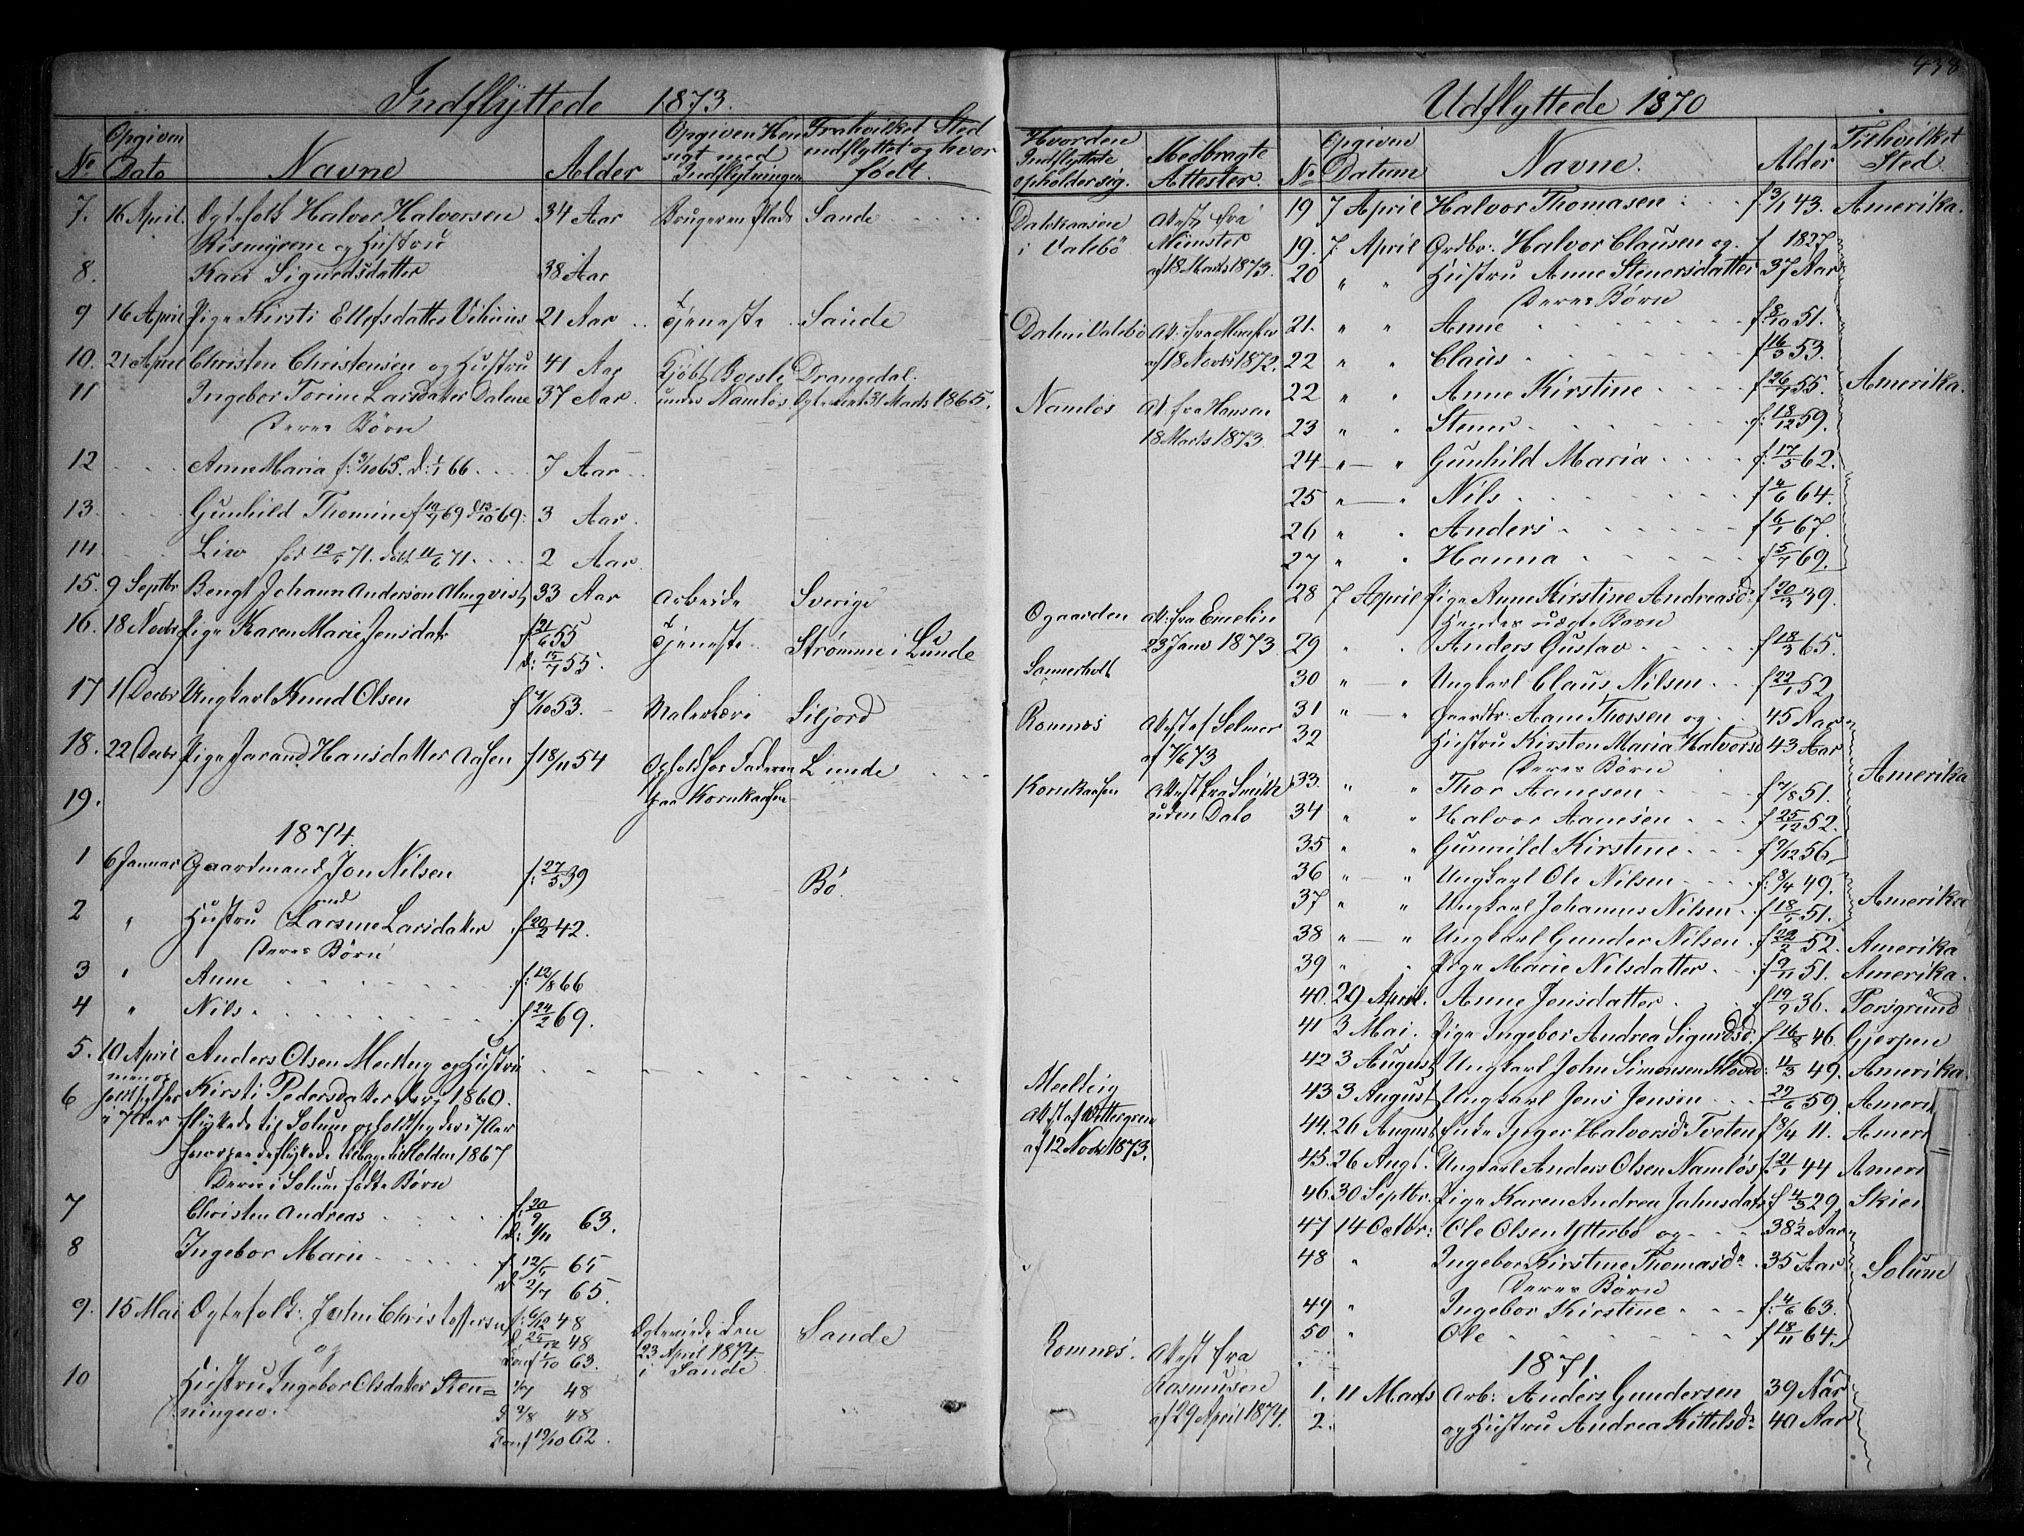 438
Indflyttede 1873.
No
Opgiven Dato
Navne
Alder
Opgiven Hensigt med Indflytningen
Fra hvilket Sted indflyttet og hvor født.
7. 16 April. Ægtefolk Halvor Halvorsen 34 Aar Bruger en Plads Sande
Rismyrene og Hustru
8. Kari Sigurdsdatter 38 Aar
9 16 April Pige Kirsti Ellefsdatter 21 Aar Tjeneste Sande
10. 21 April Christen Christensen og Hustru 41 Aar Kjøbt Drangedal.
11 Ingebor Torine Larsdatter Dalene 37 Aar under Namløs Ægteviet 31 Marts 1865.
Deres Børn
12 Anne Maria f: 3/10 65. d: 1/1 66 7 Aar
13. Gunhild Thomine 69 69. 3 Aar.
14. Liv født 71. døbt 71. 2 Aar
15. 9 Septbr Bengt Johann Anderson Almqvist 33 Aar Arbeide Sverige
16. 18 Novbr Pige Karen Marie Jensdatr f 21/6 55 Tjeneste Strømme i Lunde
d: 15/7 55.
17 11 Decbr Ungkarl Knud Olsen f 4/10 53. Siljord
18. 22 Decbr Pige Jarand Hansdatter Aasen f 18/11 54 Ophold hos Faderen Lunde
paa Kornkaasen
19.
1874
1 6 Januar Gaardmand Jon Nilsen f: 27/5 39 Bø.
2 " Hustru Larsine Larsdatter f 20/2 42.
Deres Børn
3 " Anne f: 12/8 66
4 " Nils f 24/2 69.
5. 10 April Anders Olsen og Hustru
6 Kirsti Pedersdatter 1860.
flyttede til Solum opholdt sig der i 7 Aar
flyttede tilbage til Holden 1867
Deres i Solum fødte Børn
7 Christen Andreas f: 30/9
d: 1/11 63.
8 Ingebor Marie f 12/5 65
d 2/7 65.
9. 15 Mai Ægtefolk: John Christoffersen f: 6/12 48 Ægteviede den Sande
og d 25/12 48 23 April 1874
Conf 1/10 63. i Sande
10 Hustru Ingebor Olsdatter Sten= 1/7 48
ningen. d 2/8 48
Conf 19/10 62.
Hvorden Indflyttede opholder sig.
Medbragte Attester.
Dalskaasen i Valebø Attest fra Münster af 18 Marts 1873.
Dalen i Valebø At: fra Münster af 18 Novbr 1872.
Namløs At: fra Hansen 18 Marts 1873
Ogaarden At: fra Emelin 23 Janv 1873
Sannerholt
Romnæs Attest af Selmer af 7/6 73
Kornkaasen Attest fra Smith uden Dato
Meelteig Attest af Wettergren af 12 Novbr 1873.
Romnæs. Attest fra Rasmusen af 29 April 1874.
Udflyttede 1870
No
Opgiven Datum
Navne.
Alder
Til hvilket Sted.
19 7 April Halvor Thomasen f 3/1 43. Amerika.
19. 7 April Halvor Clausen og f 1827
20 " " Hustru Anne Stenersdatter 37 Aar
Deres Børn
21. " " Anne f 8/10 51.
22 " " Claus f 16/3 53.
22 " " Anne Kirstine f 26/7 55. Amerika.
23 " " Stener f: 18/12 59.
24 " " Gunhild Maria f: 17/5 62.
25 " " Nils f 4/6 64.
26 " " Anders f 6/1 67.
27 " " Hanna f 5/7 69.
28 7 April Pige Anne Kirstine Andreasd: f 20/3 39.
Hendes uægte Barn
29 " " Anders Gustav f 18/3 65.
30 " " Ungkarl Claus Nilsen f 22/1 52
31 " " Gaardbr: Aane Thorsen og 45 Aar
32 Hustru Kirsten Maria Halvorsd 43 Aar
Deres Børn Amerika
33. " " Thor Aanesen f 7/8 51.
34 " " Halvor Aanesen f 25/12 52.
35 " " Gunnild Kirstine f 9/12 56
36 " " Ungkarl Ole Nilsen f: 8/4 49.
37 " " Ungkarl Johannes Nilsen f 18/1 51. Amerika
38 " " Ungkarl Gunder Nilsen f 22/2 52. Amerika
39 " " Pige Marie Nilsdatter f 9/11 51. Amerika.
40. 29 April. Anne Jensdatter f 19/7 36. Porsgrund
41 3 Mai. Pige Ingebor Andrea Sigurdsd. f 16/8 46. Gjerpen
42 3 August Ungkarl John Simonsen f 4/3 49. Amerika.
43 3 August Ungkarl Jens Jensen 29/6 59. Ameri
44. 26 August Enke Halvorsd Tveten f 8/4 11. Ameri
45. 26 Augt. Ungkarl Anders Olsen Namløs f 21/1 44 Ameri
46. 30 Septbr. Pige Karen Andrea Johnsdatr f 4/3 29 Skien
47 14 Octbr: Ole Olsen Ytterbø og 38½ Aar
48 " Ingebor Kirstine Thomasdr 35 Aar
Deres Børn Solum
49 " Ingebor Kirstine f: 4/6 63.
50 " Ole f 18/11 64.
1871.
1. 11 Marts Arb: Anders Gundersen 39 Aar
2. og Hustru Andrea Kittelsdr 40 Aar